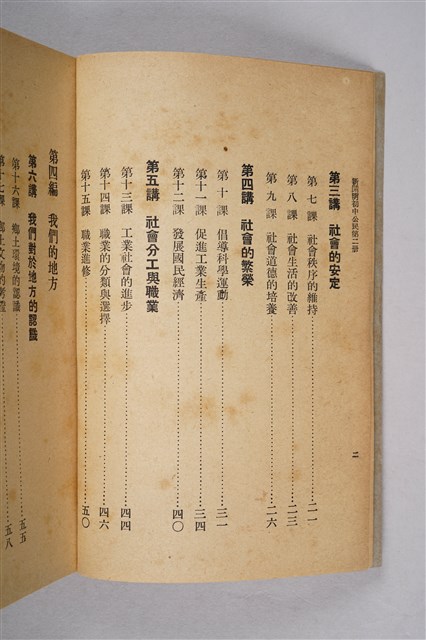 新開明初中公民第二册
二
第三講 社會的安定
第七課 社會秩序的維持 二一
第八課 社會生活的改善 二三
第九課 社會道德的培養 二六
第四講 社會的繁榮
第十課 倡導科學運動 三一
第十一課 促進工業生產 三四
第十二課 發展國民經濟 四〇
第五講 社會分工與職業
第十三課 工業社會的進步 四四
第十四課 職業的分類與選擇 四六
第十五課 職業進修 五〇
第四編 我們的地方
第六講 我們對於地方的認識
第十六課 鄉土環境的認識 五五
第十七課 鄉土文物的考察 五八